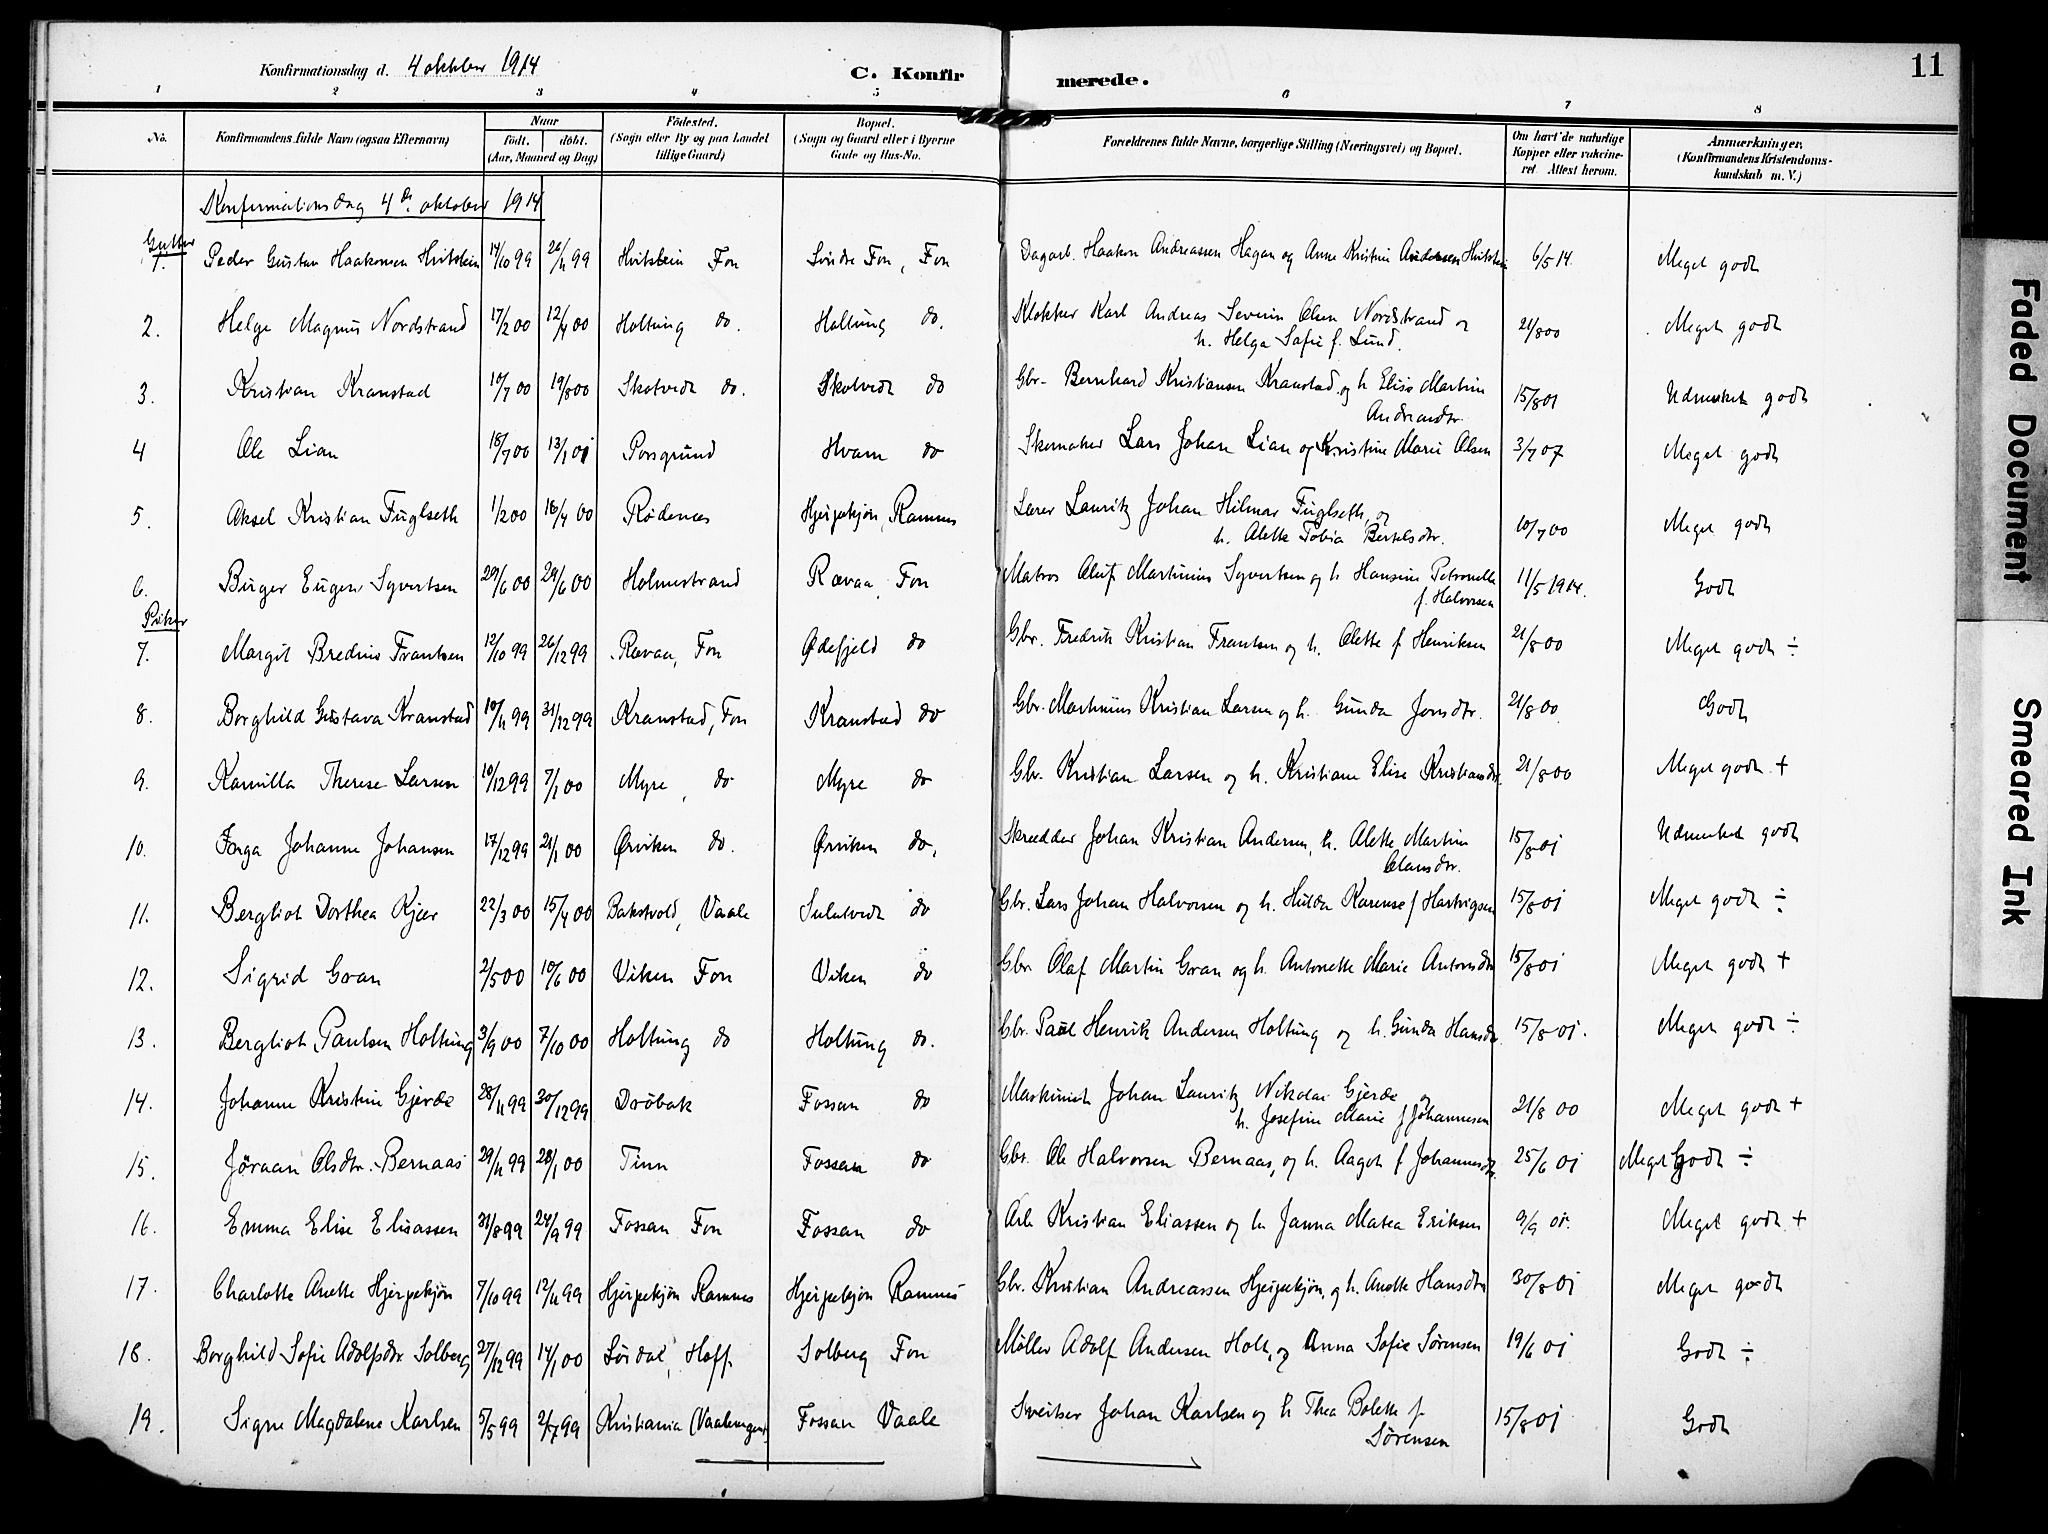 Konfirmationsdag d. 4 oktober 1914 C. Konfirmerede. 11
1 2 3 4 5 6 7 8
No. Konfirmandens fulde Navn (ogsaa Efternavn) Naar født. døbt. (Aar, Maaned og Dag) Fødested. (Sogn eller By og paa Landet tillige Gaard) Bopæl. (Sogn og Gaard eller i Byerne Gade og Hus-No. Forældrenes fulde Navne, borgerlige Stilling (Næringsvei) og Bopæl. Om havt de naturlige Kopper eller vakcineret. Attest herom. Anmærkninger. (Konfirmandens Kristendomskundskab m. V.)
Konfirmationsdag 4de oktober 1914
Gutter
1. Peder Gustav Haakonsen Hvitstein 14/10 99 26/11 99 Hvitstein Fon Søndre Fon, Fon Dagarb. Haakon Andreassen Hagan og Anne Kristine Andersen Hvitstein 6/5 14. Meget godt
2. Helge Magnus Nordstrand 17/2 00 12/4 00 Holtung do. Holtung do. Klokker Karl Andreas Severin Olsen Nordstrand og
h. Helga Sofie f. Lund. 21/8 00 Meget godt
3. Kristian Kranstad 10/7 00 19/8 00 Skotvedt do. Skotvedt do Gbr. Bernhard Kristiansen Kranstad og h. Elise Martine
Andreasdtr. 15/8 01 Udmerket godt
4 Ole Lian 18/7 00 13/1 01 Porsgrund Hvam do Skomaker Lars Johan Lian og Kristine Marie Olsen 3/7 07 Meget godt
5. Aksel Kristian Fuglseth 1/2 00 16/4 00 Rødenes Hjerpekjøn, Ramnes Lærer Lauritz Johan Hilmar Fuglseth, og
h. Alette Tobia Bertelsdtr. 10/7 00 Meget godt
6. Birger Eugen Syvertsen 29/6 00 29/6 00 Holmestrand Rævaa, Fon Matros Oluf Martinius Syvertsen og h. Hansine Petronelle
f. Halvorsen 11/5 1914. Godt
Piker
7. Margit Bredine Frantsen 12/10 99 26/12 99 Rævaa, Fon Ødefjeld do Gbr. Fredrik Kristian Frantsen og h. Alette f Henriksen 21/8 00 Meget godt ÷
8. Borghild Gustava Kranstad 10/11 99 31/12 99 Kranstad, Fon Kranstad do Gbr. Martinius Kristian Larsen og h. Gunda Jonsdtr. 21/8 00. Godt
9. Kamilla Therese Larsen 10/12 99 7/1 00 Myre, do Myre do Gbr. Kristian Larsen og h. Kristiane Elise Kristiansdtr. 21/8 00 Meget godt +
10. Inga Johanne Johansen 17/12 99 21/1 00 Ørviken do. Ørviken do. Skrædder Johan Kristian Andersen, h. Alette Martine
Olausdtr. 15/8 01 Udmerket godt
11. Bergliot Dorthea Kjær 22/3 00 15/4 00 Bakstvold, Vaale Sulutvedt do Gbr. Lars Johan Halvorsen og h. Hulda Karense f Hartvigsen 15/8 01 Meget godt ÷
12. Sigrid Gran 2/5 00 10/6 00 Viken Fon Viken do Gbr. Olaf Martin Gran og h. Antonette Marie Antonsdtr 15/8 01 Meget godt +
13. Bergliot Paulsen Holtung 3/9 00 7/10 00 Holtung do Holtung do. Gbr. Paul Henrik Andersen Holtung og h. Gunda Hansdtr. 15/8 01. Meget godt ÷
14. Johanne Kristine Gjerde 28/11 99 30/12 99 Drøbak Fossan do Maskinist Johan Lauritz Nikolai Gjerde og
h. Josefine Marie f Johannesen 21/8 00 Meget godt +
15. Jøraan Olsdtr. Bernaas 29/11 99 28/1 00 Tinn Fossan do Gbr. Ole Halvorsen Bernaas, og h. Aagot f Johannesdtr. 25/6 01 Meget godt ÷
16. Emma Elise Eliassen 31/8 99 24/9 99 Fossan Fon Fossan do Arb. Kristian Eliassen og h. Janna Matea Eriksen 9/9 01. Meget godt +
17. Charlotte Anette Hjerpekjøn 7/10 99 12/11 99 Hjerpekjøn Ramnes Hjerpekjøn Ramnes Gbr. Kristian Andreassen Hjerpekjøn, og h. Anette Hansdtr 30/8 01 Meget godt
18. Borghild Sofie Adolfsdtr Solberg 27/12 99 14/1 00 Sørdal, Hoff Solberg Fon Møller Adolf Andersen Holt, og Anna Sofie Sørensen 19/6 01 Godt ÷
19. Signe Magdalene Karlsen 5/5 99 2/7 99 Kristiania (Vaalerengen). Fossan Vaale Sveitser Johan Karlsen og h Thea Bolette f
Sørensen 15/8 01 Godt
Faded Document
Smeared Ink